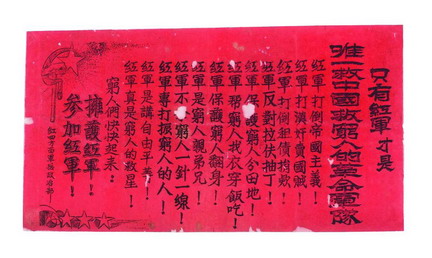 只有紅軍才是
唯一救中國救窮人的革命軍隊
紅軍打倒帝國主義！
紅軍打漢奸賣國賊！
紅軍打倒租債捐欵！
紅軍反對拉伕抽丁！
紅軍保護窮人分田地！
紅軍帮窮人找衣穿飯吃！
紅軍保護窮人翻身！
紅軍是窮人親弟兄！
紅軍不拿窮人一針一線！
紅軍專打窮人的人！
紅軍是講自由平等！
紅軍真是窮人的救星！
窮人們快快起來！
擁護紅軍！
參加紅軍！
紅四方面軍總政治部